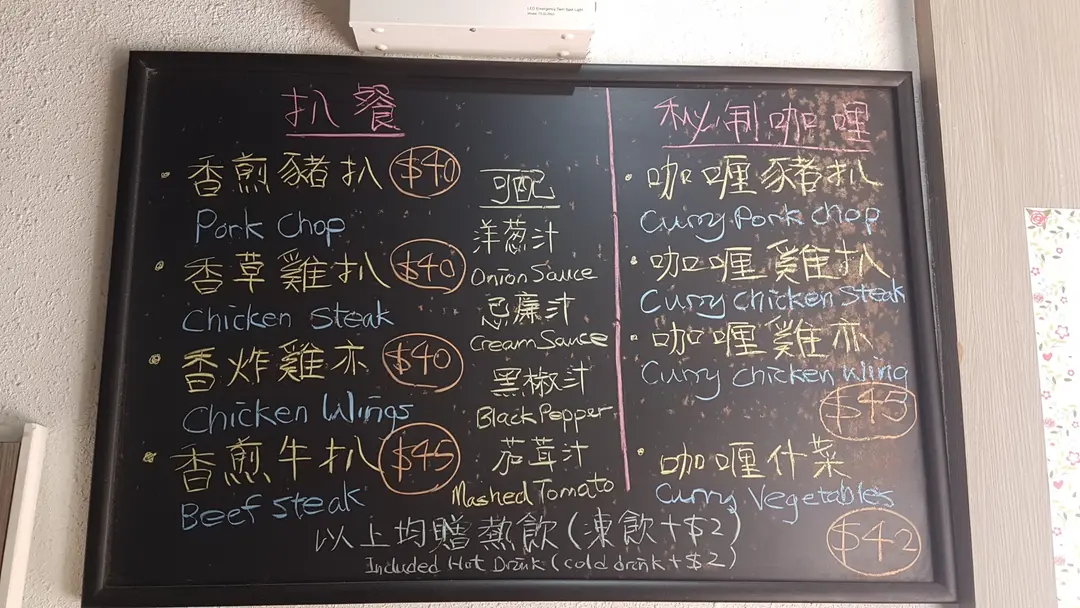 扒餐
香煎豬扒 $40
Pork Chop
香草雞扒 $40
Chicken Steak
香炸雞亦 $40
Chicken Wings
香煎牛扒 $45
Beef Steak
可配
洋葱汁
Onion Sauce
忌廉汁
Cream Sauce
黑椒汁
Black Pepper
茄茸汁
Mashed Tomato
秘制咖哩
咖喱豬扒
Curry Pork Chop
咖喱雞扒
Curry Chicken Steak
咖喱雞亦
Curry Chicken Wing
$45
咖喱什菜
Curry Vegetables
$42
以上均贈熱飲(凍飲+$2)
Included Hot Drink (cold drink + $2)